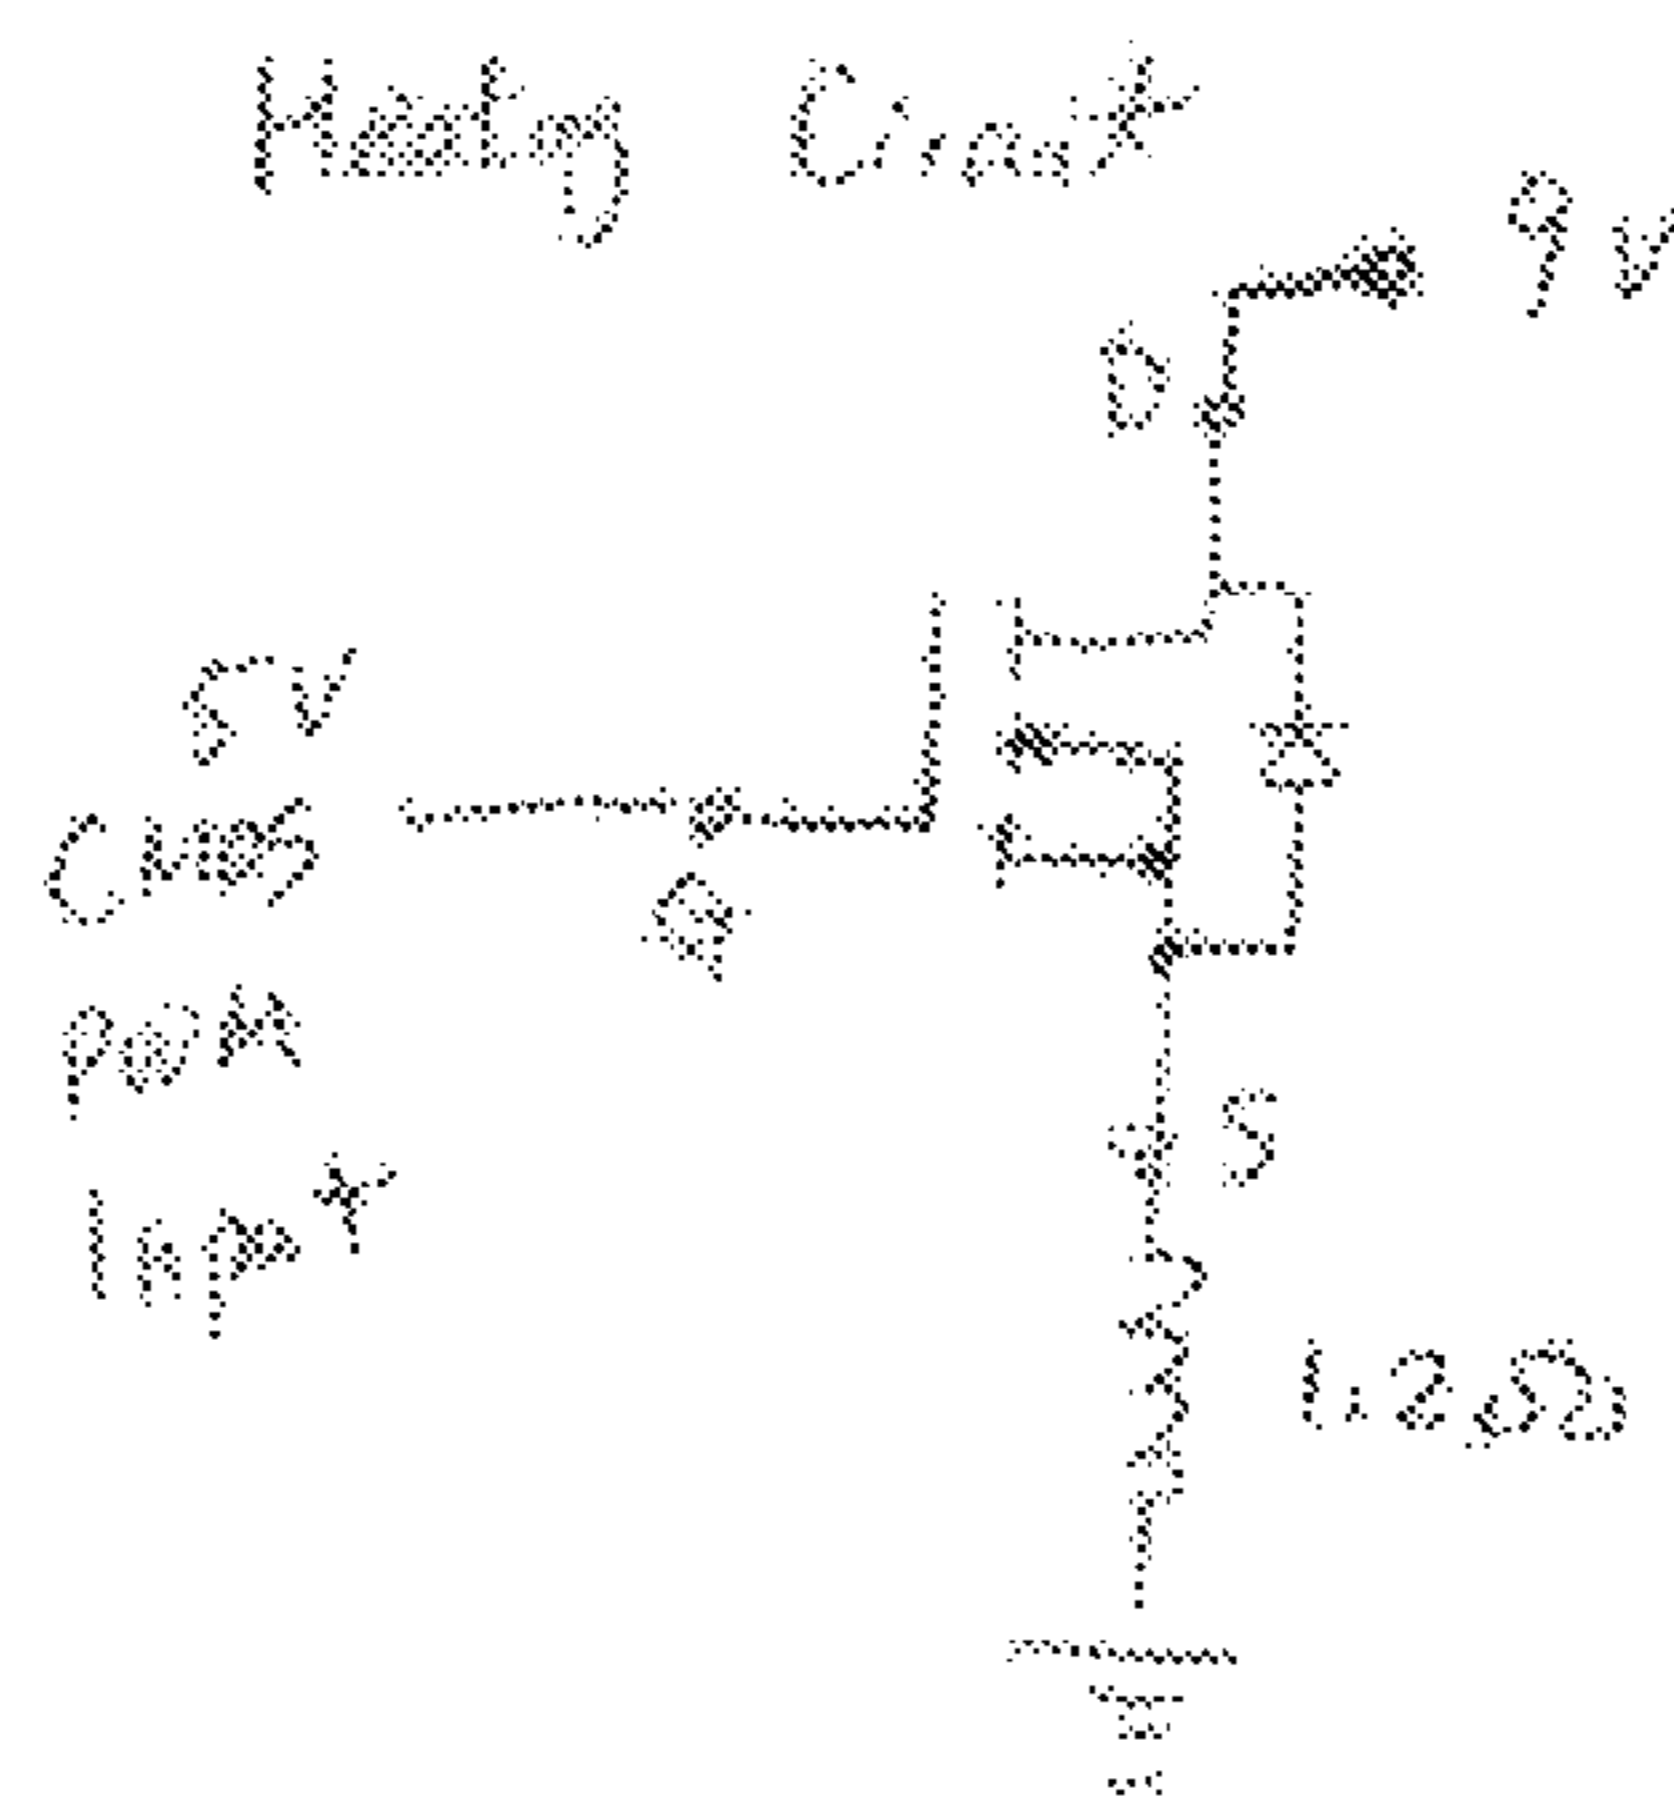 Heating Circuit
9V
D
5V
CMOS
G
PWM
S
Input
1.2Ω